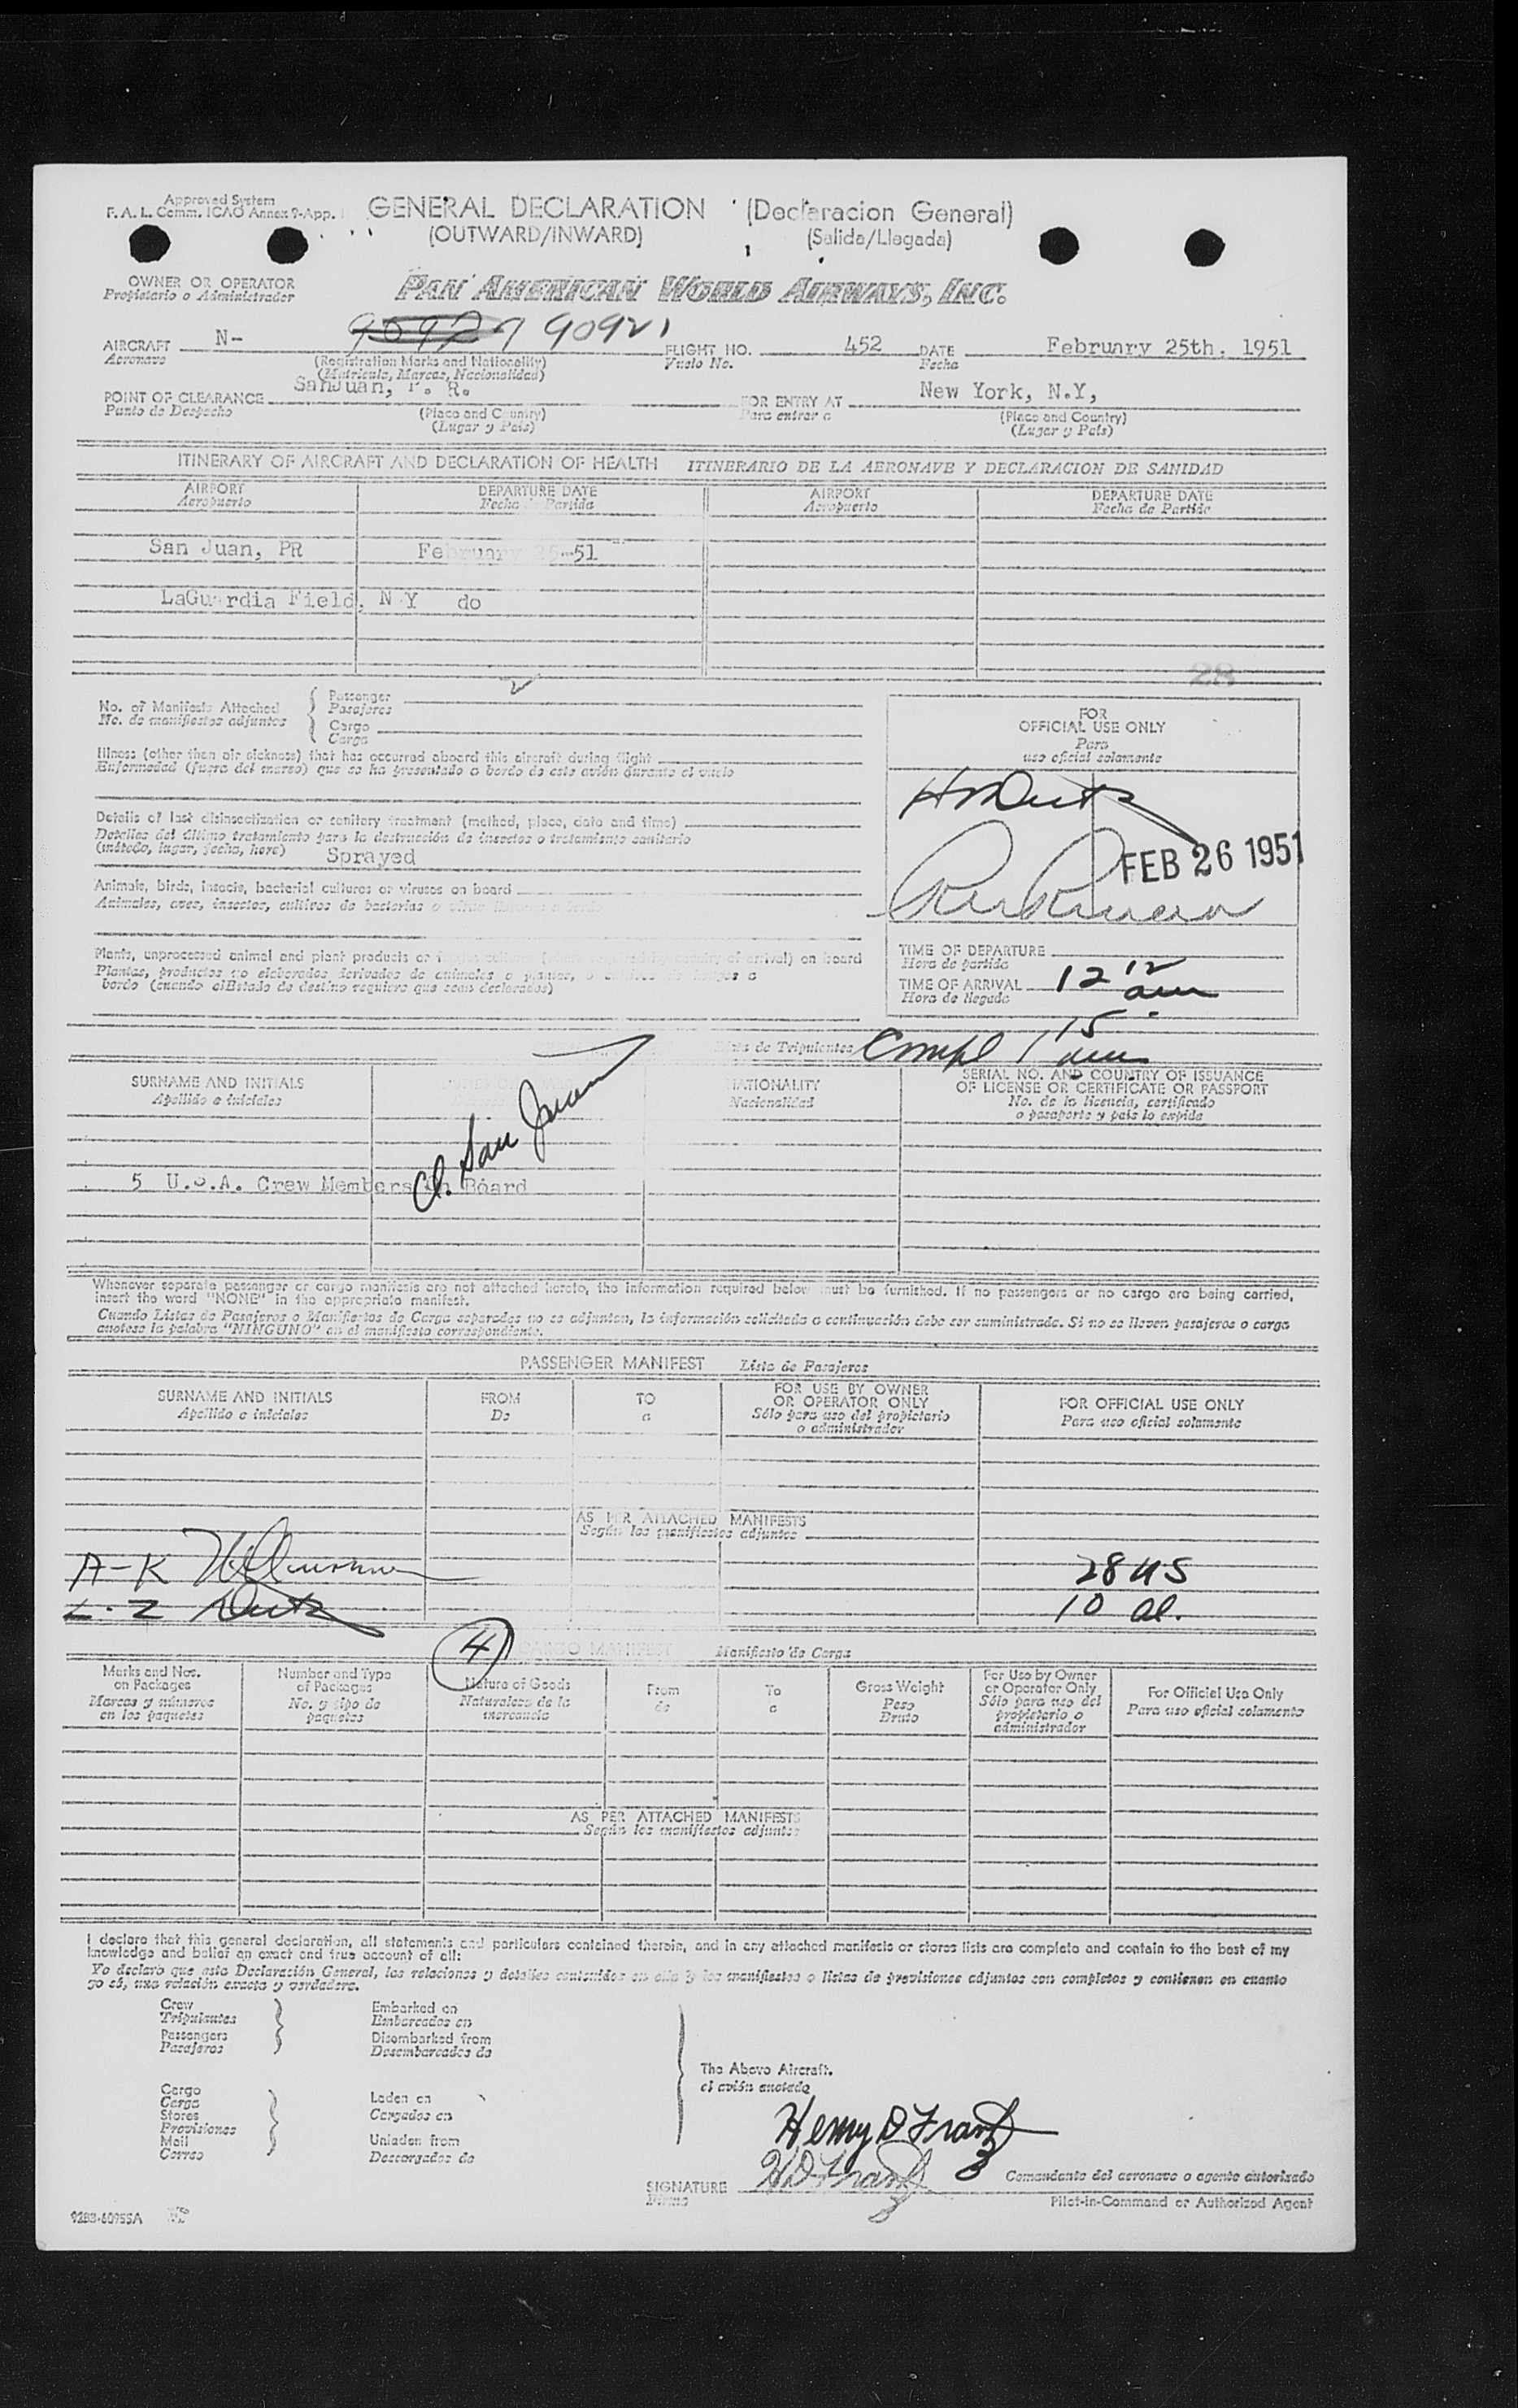 Approved System
F. A. L. Comm. ICAO Annex 9-App. 1
GENERAL DECLARATION (Declaracion General)
(OUTWARD/INWARD) (Salida/Llegada)
OWNER OR OPERATOR
Propietario o Administrador
PAN AMERICAN WORLD AIRWAYS, INC.
AIRCRAFT N- 90921 FLIGHT NO. 452 DATE February 25th. 1951
Aeronave (Registration Marks and Nationality) Vuelo No. Fecha
(Matricula, Marcas, Nacionalidad)
POINT OF CLEARANCE SanJuan, P. R. FOR ENTRY AT New York, N.Y,
Punto de Despacho (Place and Country) Para entrar a (Place and Country)
(Lugar y Pais) (Lugar y Pais)
ITINERARY OF AIRCRAFT AND DECLARATION OF HEALTH ITINERARIO DE LA AERONAVE Y DECLARACION DE SANIDAD
AIRPORT DEPARTURE DATE AIRPORT DEPARTURE DATE
Aeropuerto Fecha de Partida Aeropuerto Fecha de Partida
San Juan, PR February 25-51
LaGuardia Field, N Y do
28
No. of Manifests Attached Passenger 2
No. de manifiestos adjuntos Pasajeros
Cargo
Carga
Illness (other than air sickness) that has occurred aboard this aircraft during flight
Enfermedad (fuera del mareo) que se ha presentado a bordo de este avión durante el vuelo
Details of last disinsectization or sanitary treatment (method, place, date and time)
Detalles del último tratamiento para la destrucción de insectos o tratamiento sanitario
(método, lugar, fecha, hora) Sprayed
Animals, birds, insects, bacterial cultures or viruses on board
Animales, aves, insectos, cultivos de bacterias o
Plants, unprocessed animal and plant products or of arrival) on board
Plantas, productos no elaborados derivados de animales o plantas, o
bordo (cuando el Estado de destino requiera que sean declarados)
FOR
OFFICIAL USE ONLY
Para
uso oficial solamente
FEB 26 1951
TIME OF DEPARTURE
Hora de partida
TIME OF ARRIVAL 12 12 am
Hora de llegada
Lista de Tripulantes Compl 1 15 am
SURNAME AND INITIALS NATIONALITY SERIAL NO. AND COUNTRY OF ISSUANCE
Apellido e iniciales Nacionalidad OF LICENSE OR CERTIFICATE OR PASSPORT
No. de la licencia, certificado
o pasaporte y pais lo expida
Cl. San Juan
5 U.S.A. Crew Members On Board
Whenever separate passenger or cargo manifests are not attached hereto, the information required below must be furnished. If no passengers or no cargo are being carried,
insert the word "NONE" in the appropriate manifest.
Cuando Listas de Pasajeros o Manifiestos de Carga separados no se adjunten, la información solicitada a continuación debe ser suministrada. Si no se lleven pasajeros o carga
anotese la palabra "NINGUNO" en el manifiesto correspondiente.
PASSENGER MANIFEST Lista de Pasajeros
SURNAME AND INITIALS FROM TO FOR USE BY OWNER FOR OFFICIAL USE ONLY
Apellido e iniciales De a OR OPERATOR ONLY Para uso oficial solamente
Sólo para uso del propietario
o administrador
AS PER ATTACHED MANIFESTS
Según los manifiestos adjuntos
A-K 28 US
L-Z 10 al.
4
CARGO MANIFEST Manifiesto de Carga
Marks and Nos. Number and Type Nature of Goods From To Gross Weight For Use by Owner For Official Use Only
on Packages of Packages Naturaleza de la de a Peso or Operator Only Para uso oficial solamente
Marcas y números No. y tipo de mercancia Bruto Sólo para uso del
en los paquetes paquetes propietario o
administrador
AS PER ATTACHED MANIFESTS
Según los manifiestos adjuntos
I declare that this general declaration, all statements and particulars contained therein, and in any attached manifests or stores lists are complete and contain to the best of my
knowledge and belief an exact and true account of all:
Yo declaro que esta Declaración General, las relaciones y detalles contenidos en ella y los manifiestos o listas de provisiones adjuntos son completos y contienen en cuanto
yo sé, una relación exacta y verdadera.
Crew Embarked on
Tripulantes Embarcados en
Passengers Disembarked from
Pasajeros Desembarcados de
The Above Aircraft.
el avión anotado
Cargo Laden on
Carga Cargados en
Stores
Provisiones
Mail Unladen from
Correo Descargados de
Henry D Frantz
SIGNATURE H D Frantz Comandante del aeronave o agente autorizado
Firma Pilot-in-Command or Authorized Agent
9283-60955A